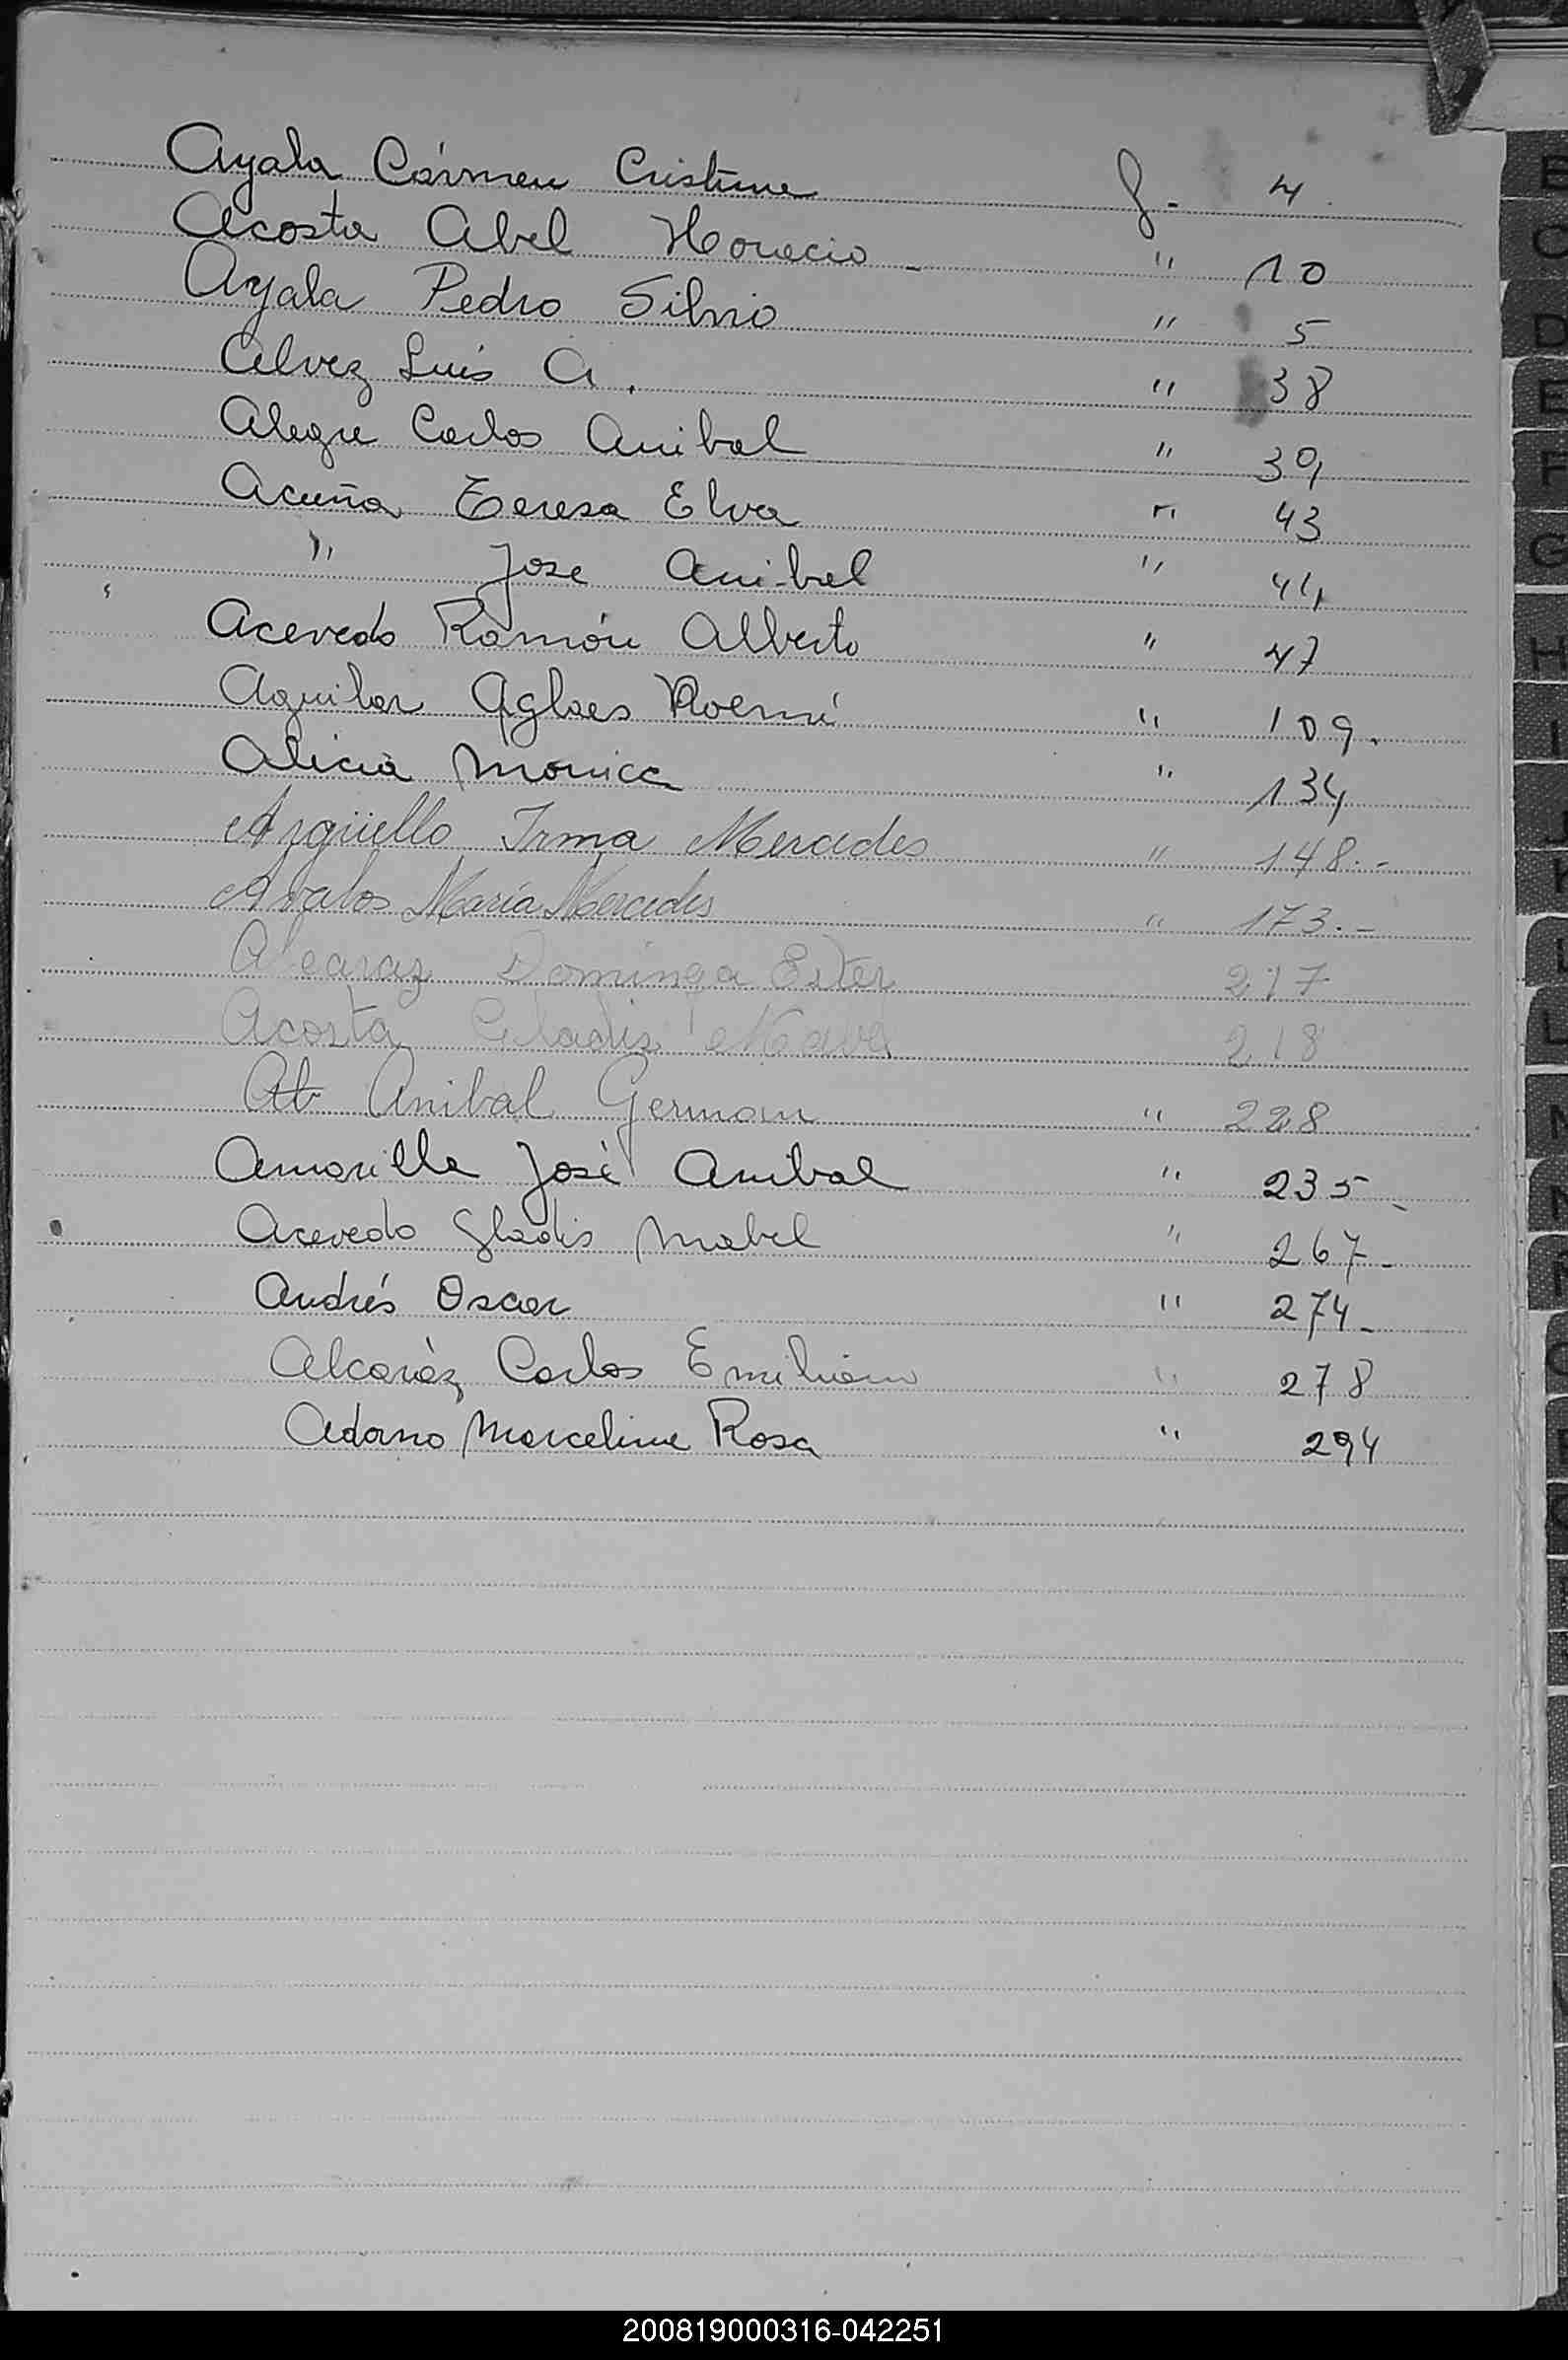 Ayala Cármen Cristina f. 4
Acosta Abel Horacio - " 10
Ayala Pedro Silvio " 5
Alvez Luis A. " 38
Alegre Carlos Anibal " 39
Acuña Teresa Elva " 43
" Jose Anibal " 44
Acevedo Ramón Alberto " 47
Aguilar Aglaes Noemí " 109.
Alicia Mónica " 134
Argüello Irma Mercedes " 148.-
Avalos María Mercedes " 173.-
Alcaraz Dominga Ester 217
Acosta Gladis 218
Anibal German " 228
Amarilla José Anibal " 235-
Acevedo Gladis Mabel " 267-
Andrés Oscar " 274-
Alcaráz Carlos Emiliano " 278
Adorno Marcelina Rosa " 294
E
C
D
E
F
G
H
I
J
K
L
L
N
200819000316-042251